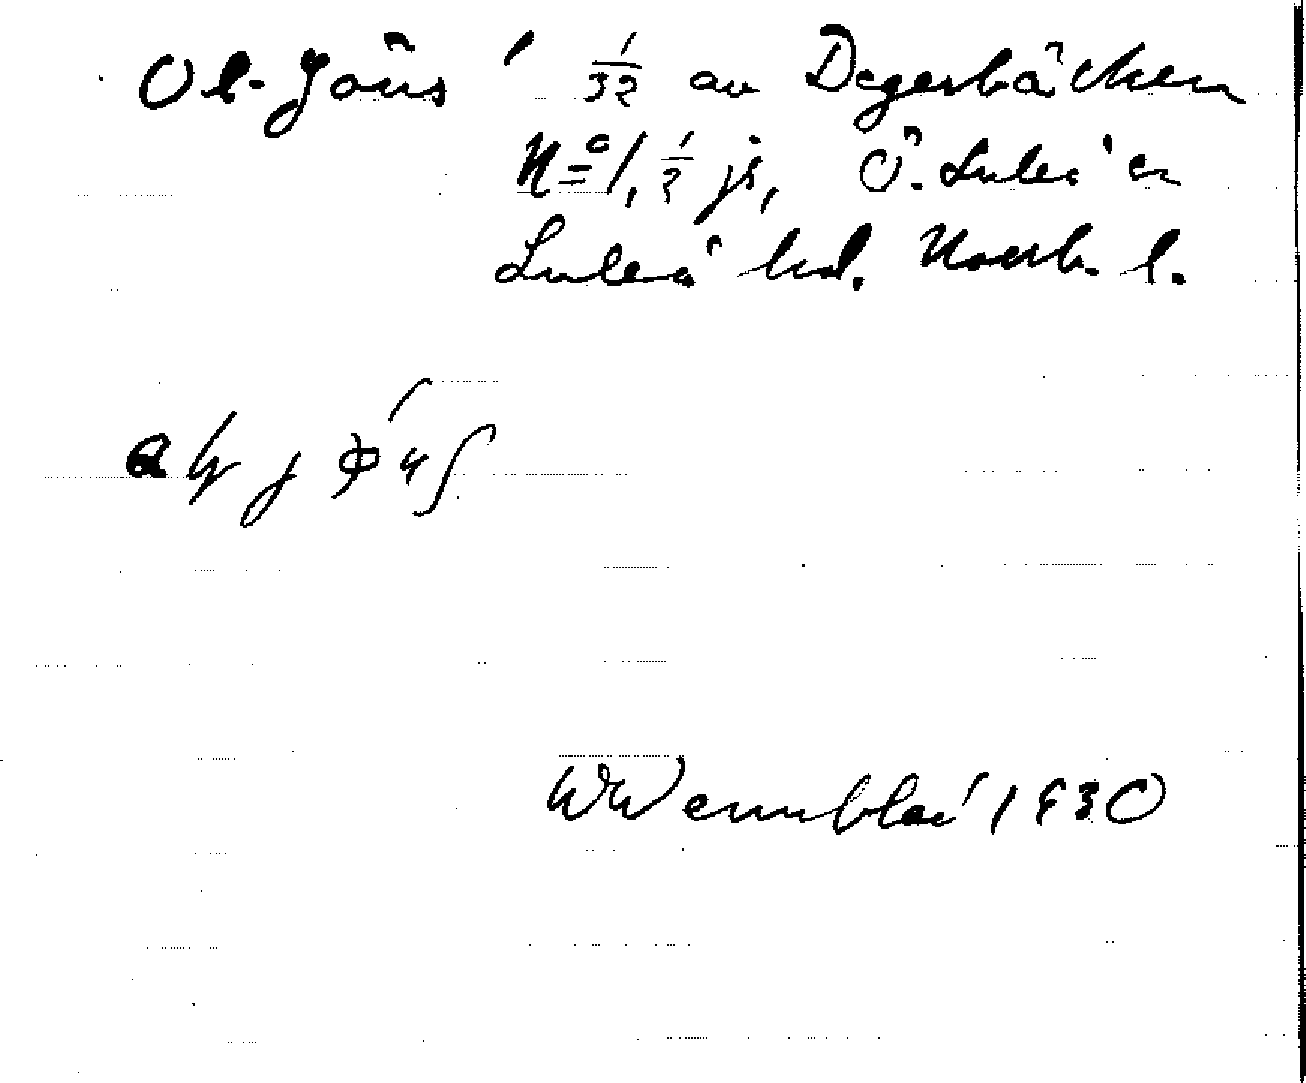 Ol-Jöns 1/32 av Degerbäcken
No 1, 1/2 js, Ö. Luleå sn
Luleå hd. Norrb. l.
W Wennblad 1930